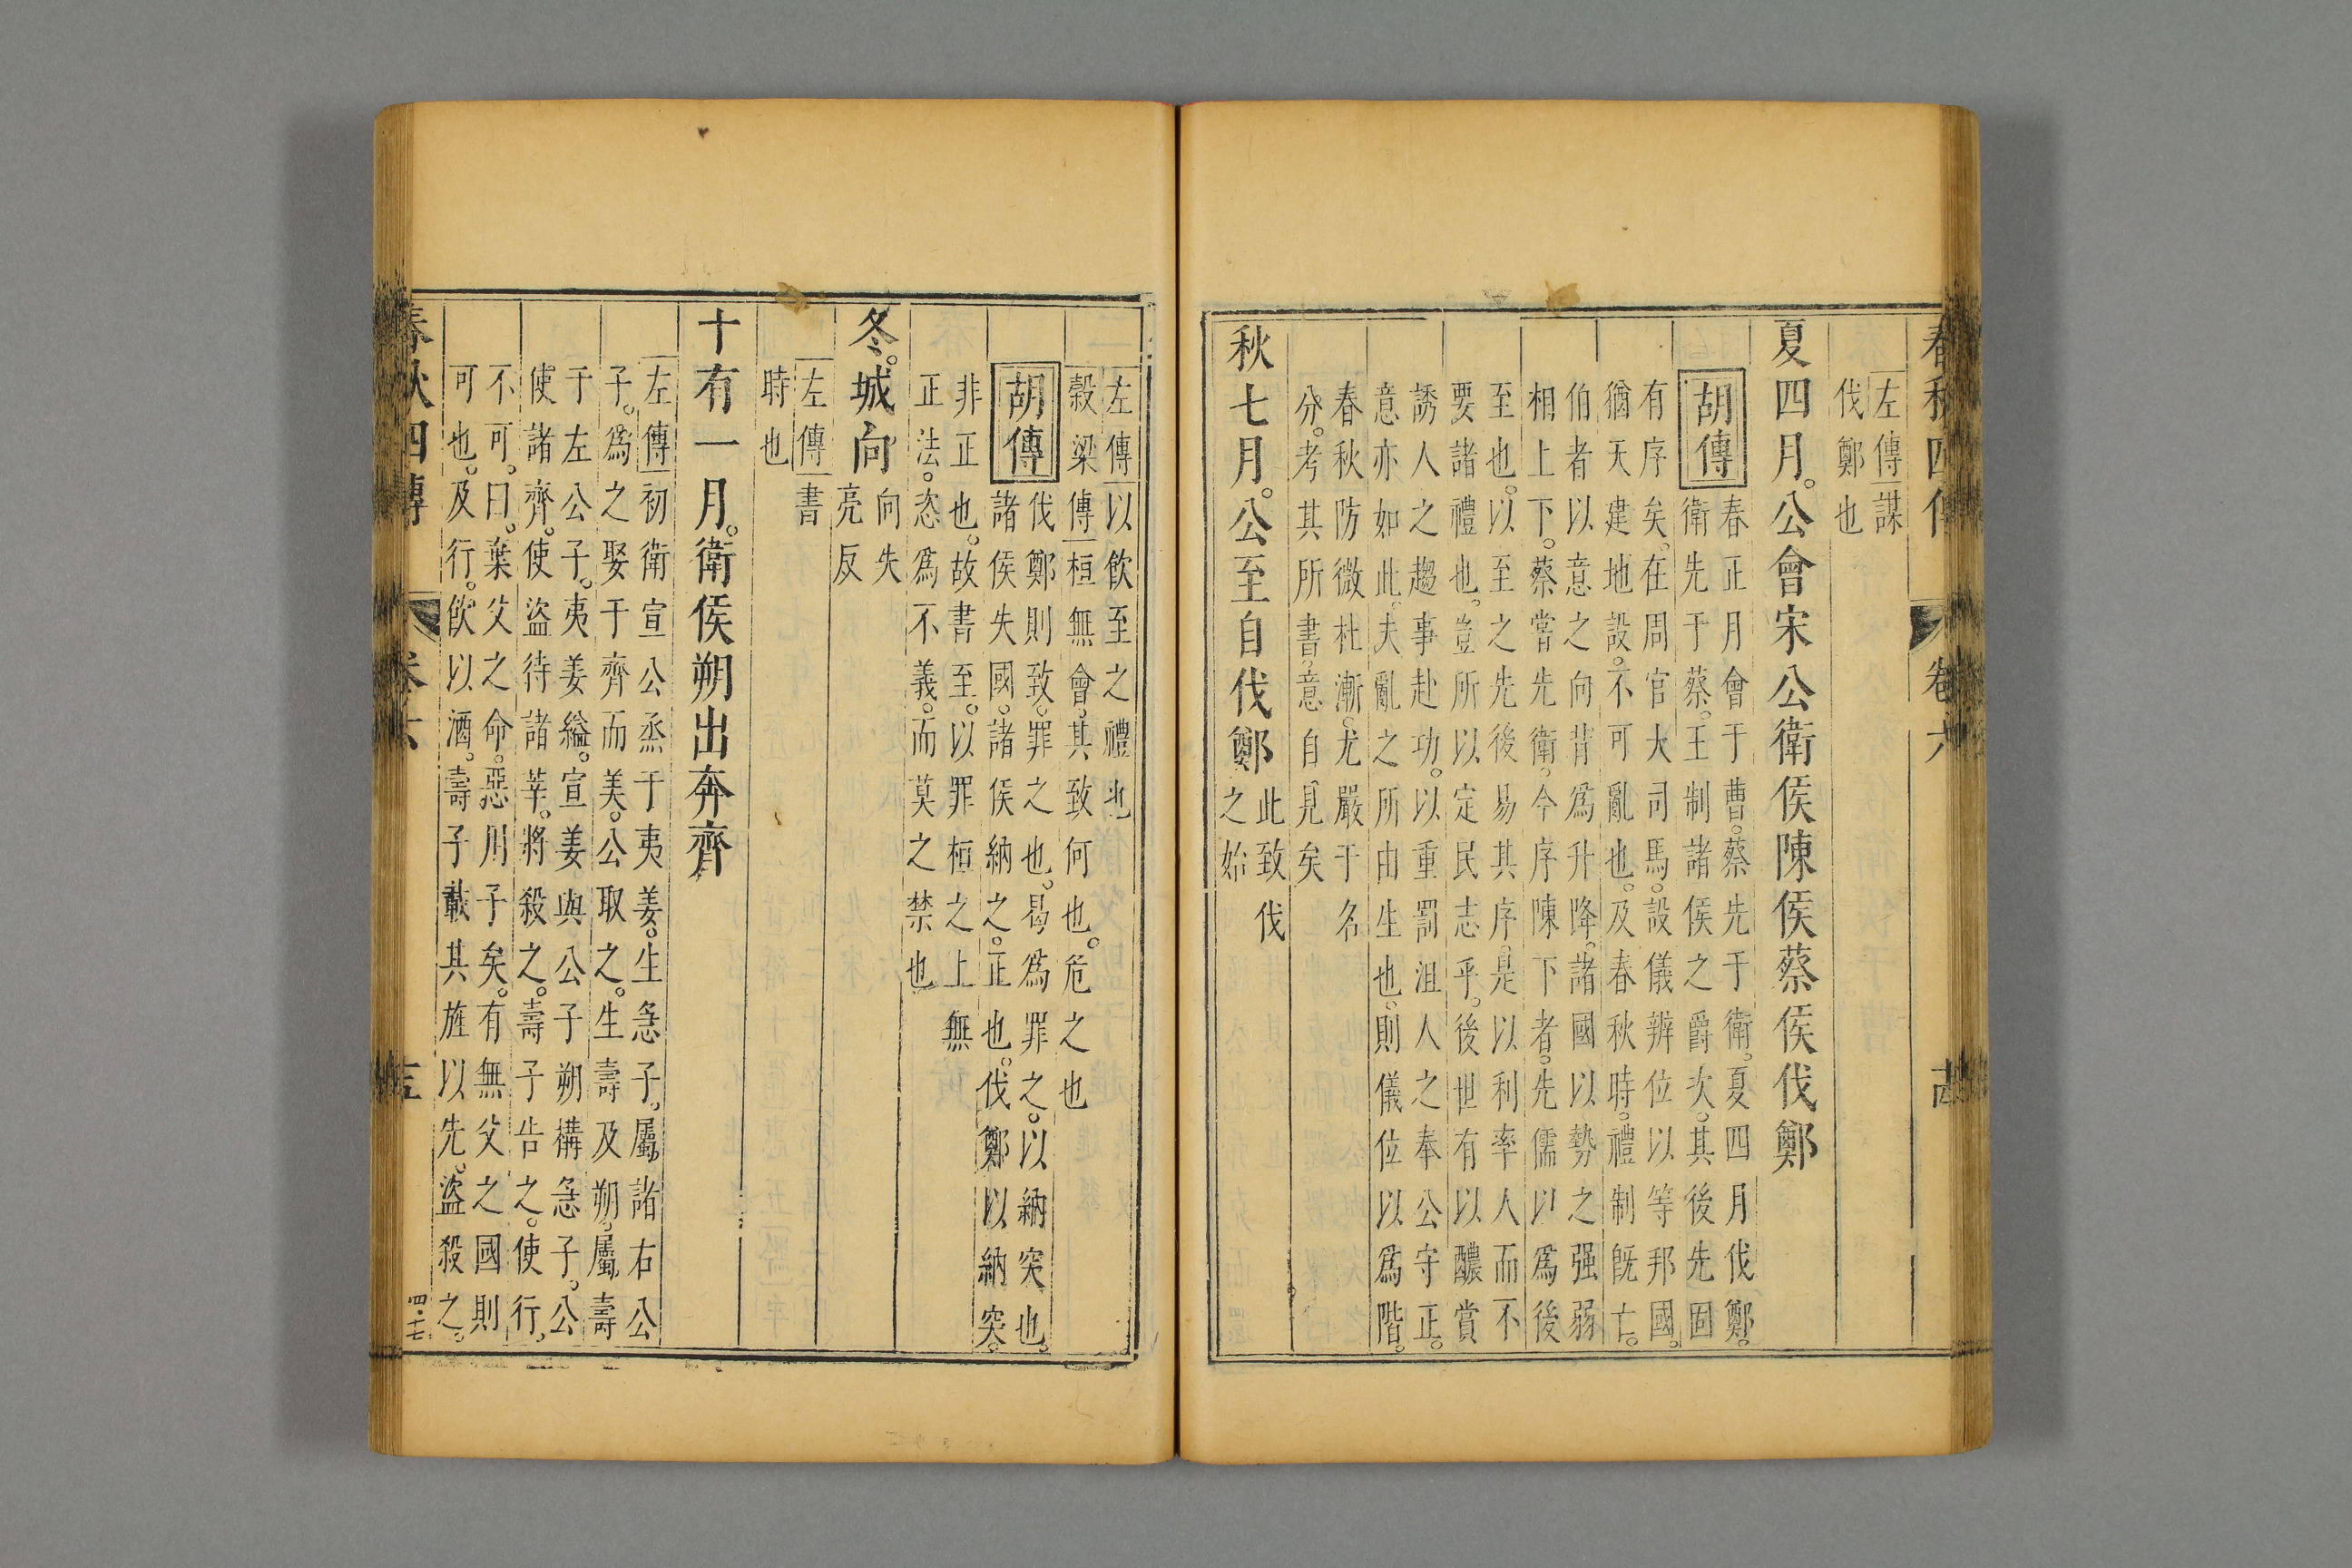 春秋四傳 卷六
左傳謀
伐鄭也
夏四月公會宋公衛侯陳侯蔡侯伐鄭
胡傳
春正月會于曹蔡先于衛夏四月伐鄭
衛先于蔡王制諸侯之爵次其後先固
有序矣在周官大司馬設儀辨位以等邦國
猶天建地設不可亂也及春秋時禮制旣亡
伯者以意之向背爲升降諸國以勢之强弱
相上下蔡嘗先衛今序陳下者先儒以爲後
至也以至之先後易其序是以利率人而不
要諸禮也豈所以定民志乎後世有以醲賞
誘人之趨事赴功以重罰沮人之奉公守正
意亦如此夫亂之所由生也則儀位以爲階
春秋防微杜漸尤嚴于名
分考其所書意自見矣
秋七月公至自伐鄭
此致伐
之始
左傳以飲至之禮也
穀梁傳桓無會其致何也危之也
胡傳
伐鄭則致罪之也曷爲罪之以納突也
諸侯失國諸侯納之正也伐鄭以納突
非正也故書至以罪桓之上無
正法恣爲不義而莫之禁也
冬城向
向失
亮反
左傳書
時也
十有一月衛侯朔出奔齊
左傳初衛宣公烝于夷姜生急子屬諸右公
子爲之娶于齊而美公取之生壽及朔屬壽
于左公子夷姜縊宣姜與公子朔構急子公
使諸齊使盜待諸莘將殺之壽子告之使行
不可曰棄父之命惡用子矣有無父之國則
可也及行飲以酒壽子載其旌以先盜殺之
四·十七
春秋四傳 卷六